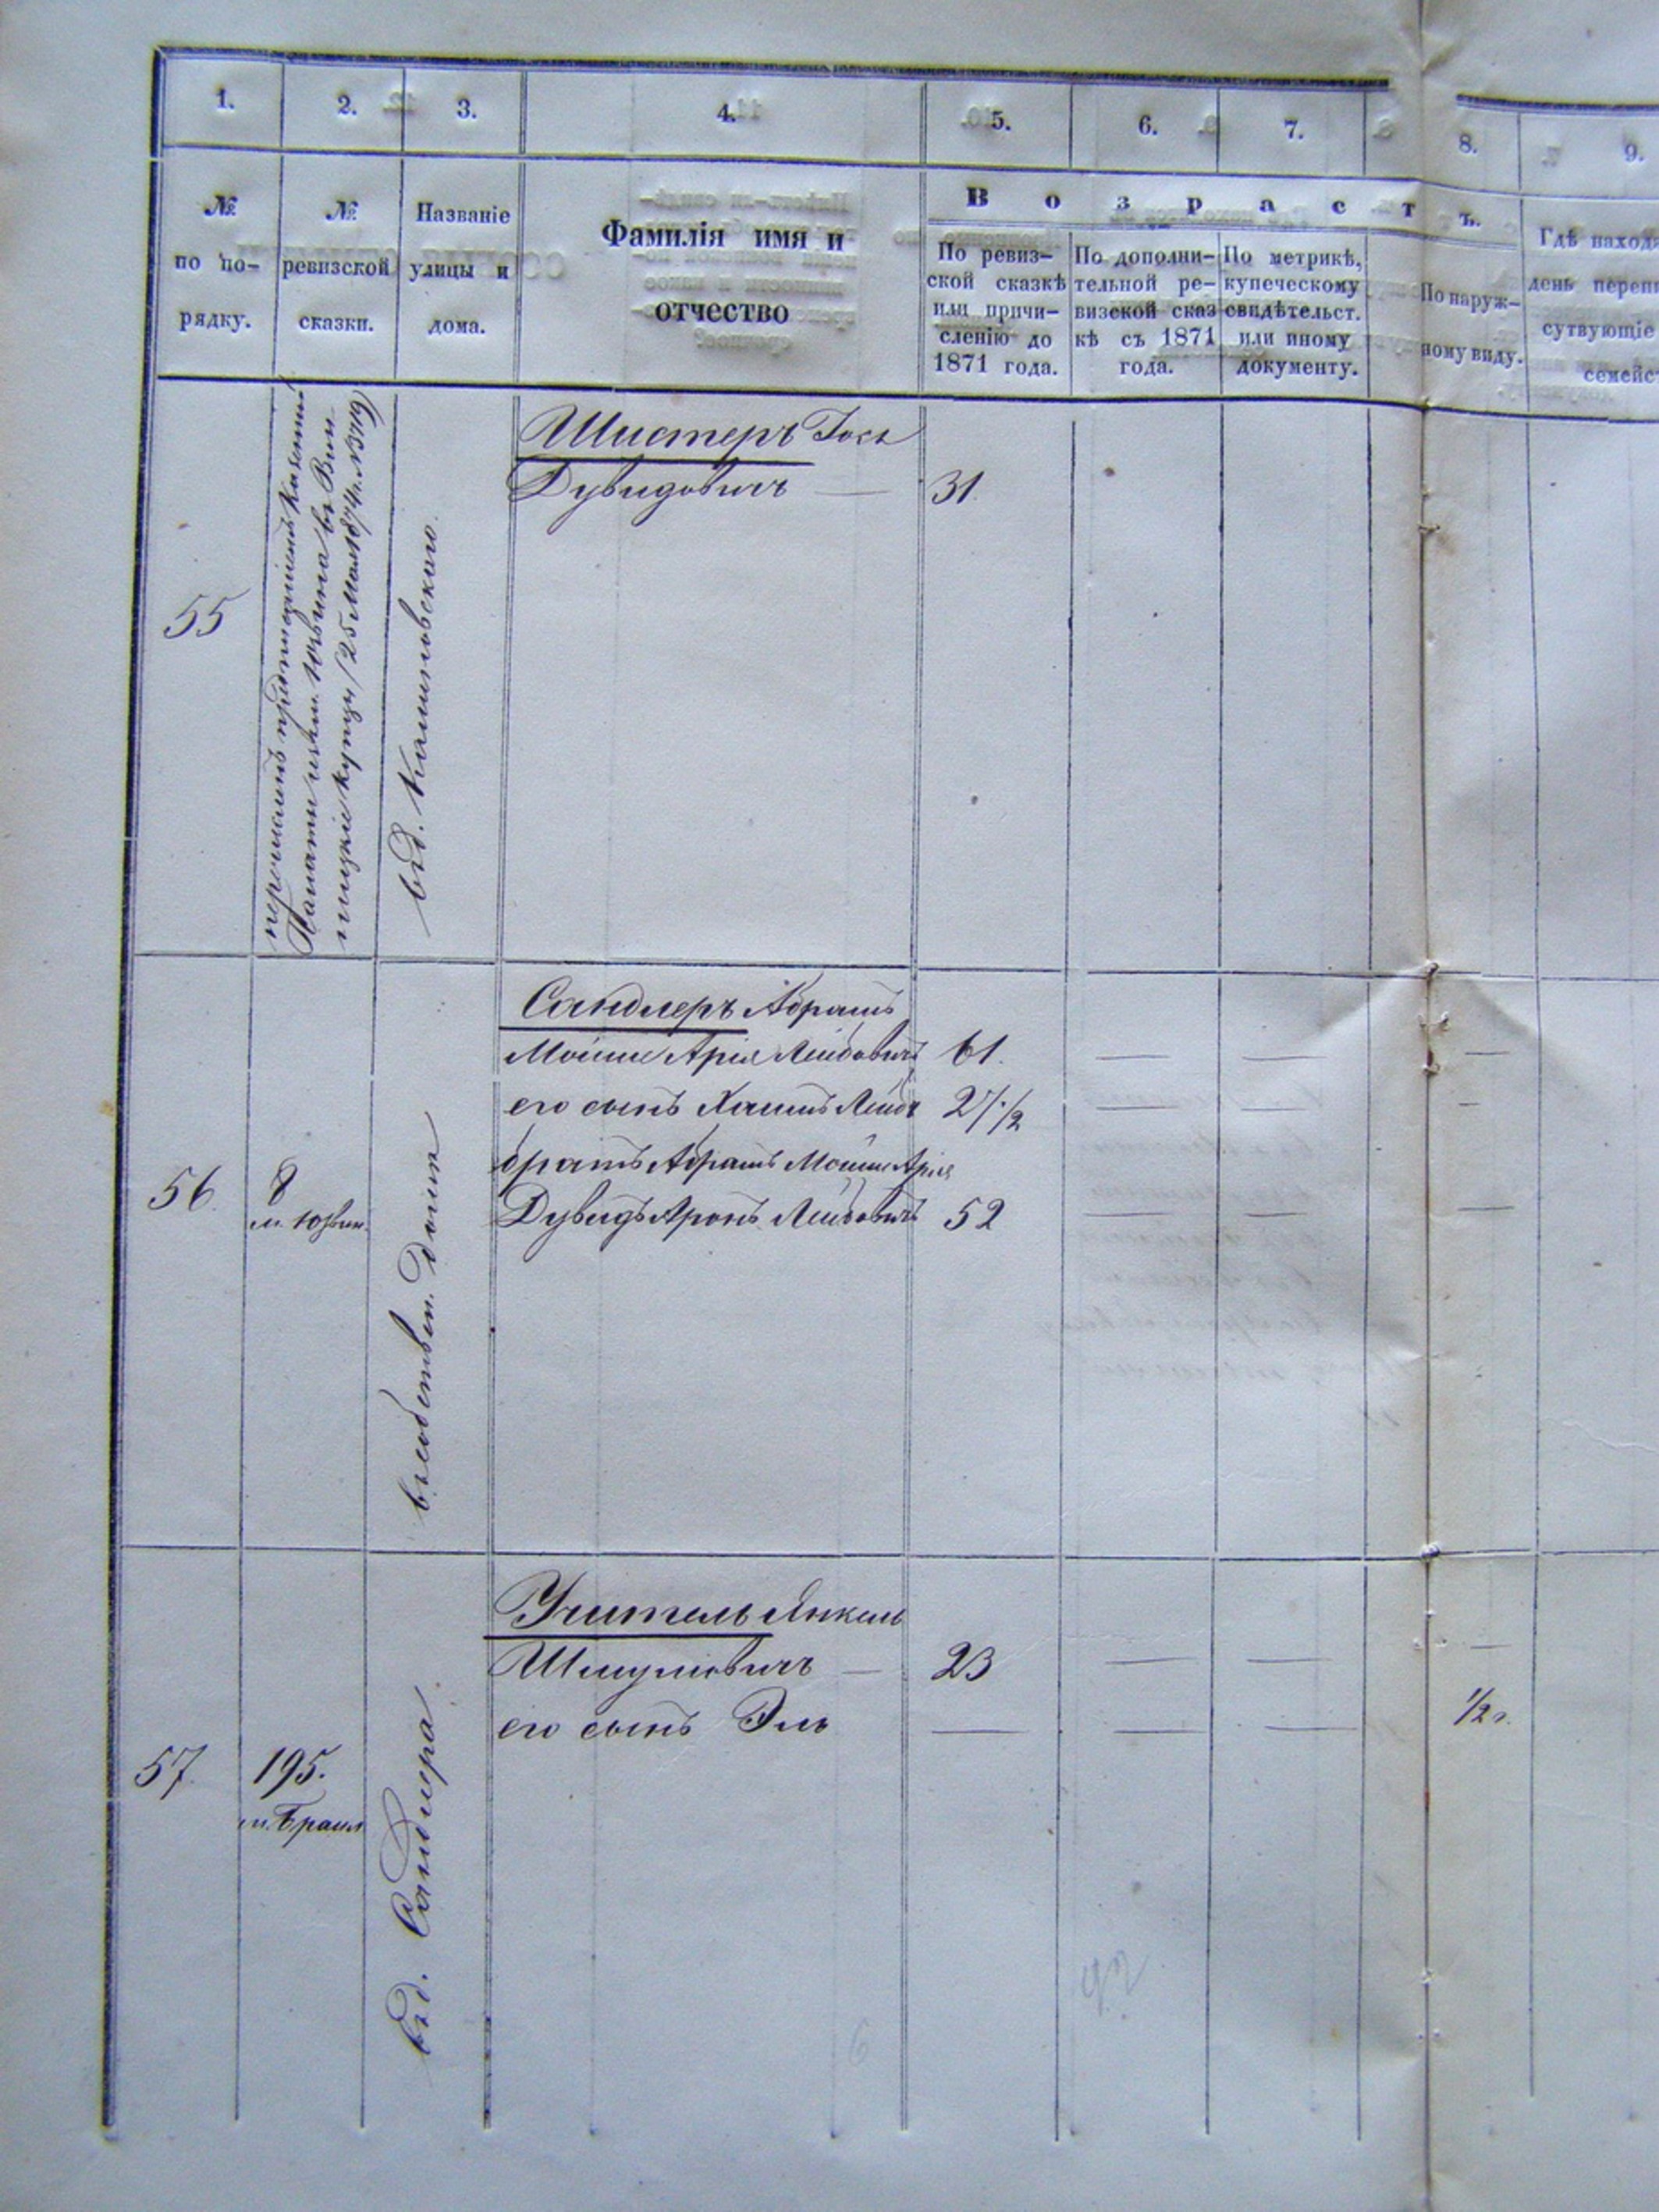 1. 2. 3. 4. 5. 6. 7. 8. 9.
№
по по-
рядку.
№
ревизской
сказки.
Названіе
улицы и
дома.
Фамилія имя и
отчество
Возрастъ.
По ревиз-
ской сказкѣ
или причи-
сленію до
1871 года.
По дополни-
тельной ре-
визской сказ
кѣ съ 1871
года.
По метрикѣ,
купеческому
свидѣтельст.
или иному
документу.
По наруж-
ному виду.
Гдѣ наход
день переп
сутвующіе
семейс
55
перечисленъ предписаніемъ Казенной
Палаты изъ м. Юзвина въ Вин
ницкіе купцы (25 Мая 1874 г. №3719)
въ д.
Шистеръ Іось
Дувидовичъ — 31.
56.
8
м. Юзвин.
въ собствен. домѣ
Сандлеръ Абрамъ
Мойше Арія Лейбовичъ 61. — — —
его сынъ Хаимъ Лейбъ 27 1/2 — — —
братъ Абрамъ Мойше Арія
Дувидъ Аронъ Лейбовичъ 52 — — —
57.
195.
м. Браил
въ д. Сандлера
Учитель Янкель
Шмулювичъ — 23 — — —
его сынъ Эль — — — 1/2 г.
92
6